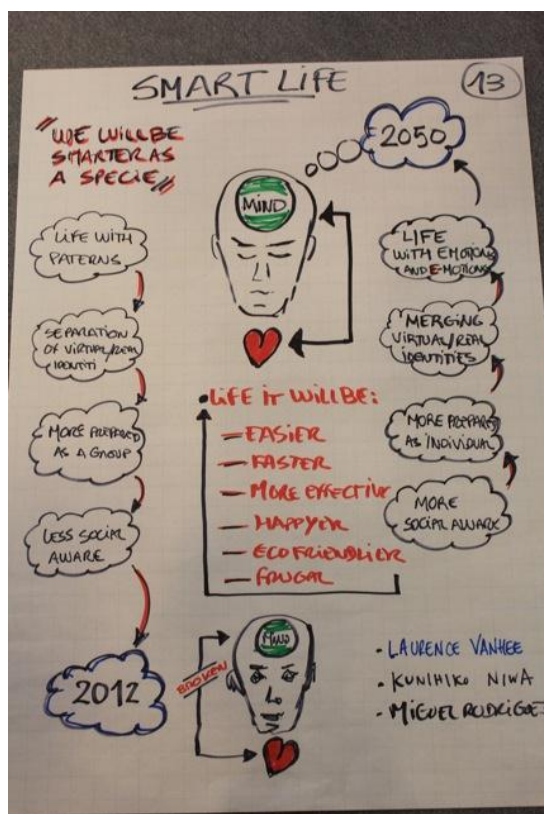 SMART LIFE
13
"WE WILL BE
SMARTER AS
A SPECIE"
LIFE WITH
PATERNS
SEPARATION
OF VIRTUAL/REAL
IDENTITI
MORE PREPARED
AS A GROUP
LESS SOCIAL
AWARE
2012
MIND
2050
LIFE
WITH EMOTIONS
AND E-MOTIONS
MERGING
VIRTUAL/REAL
IDENTITIES
MORE PREPARED
AS INDIVIDUAL
MORE
SOCIAL AWARE
• LIFE IT WILL BE:
— EASIER
— FASTER
— MORE EFFECTIVE
— HAPPYER
— ECOFRIENDLIER
— FRUGAL
MIND
BROKEN
- LAURENCE VANHEE
- KUNIHIKO NIWA
- MIGUEL RODRIGUE